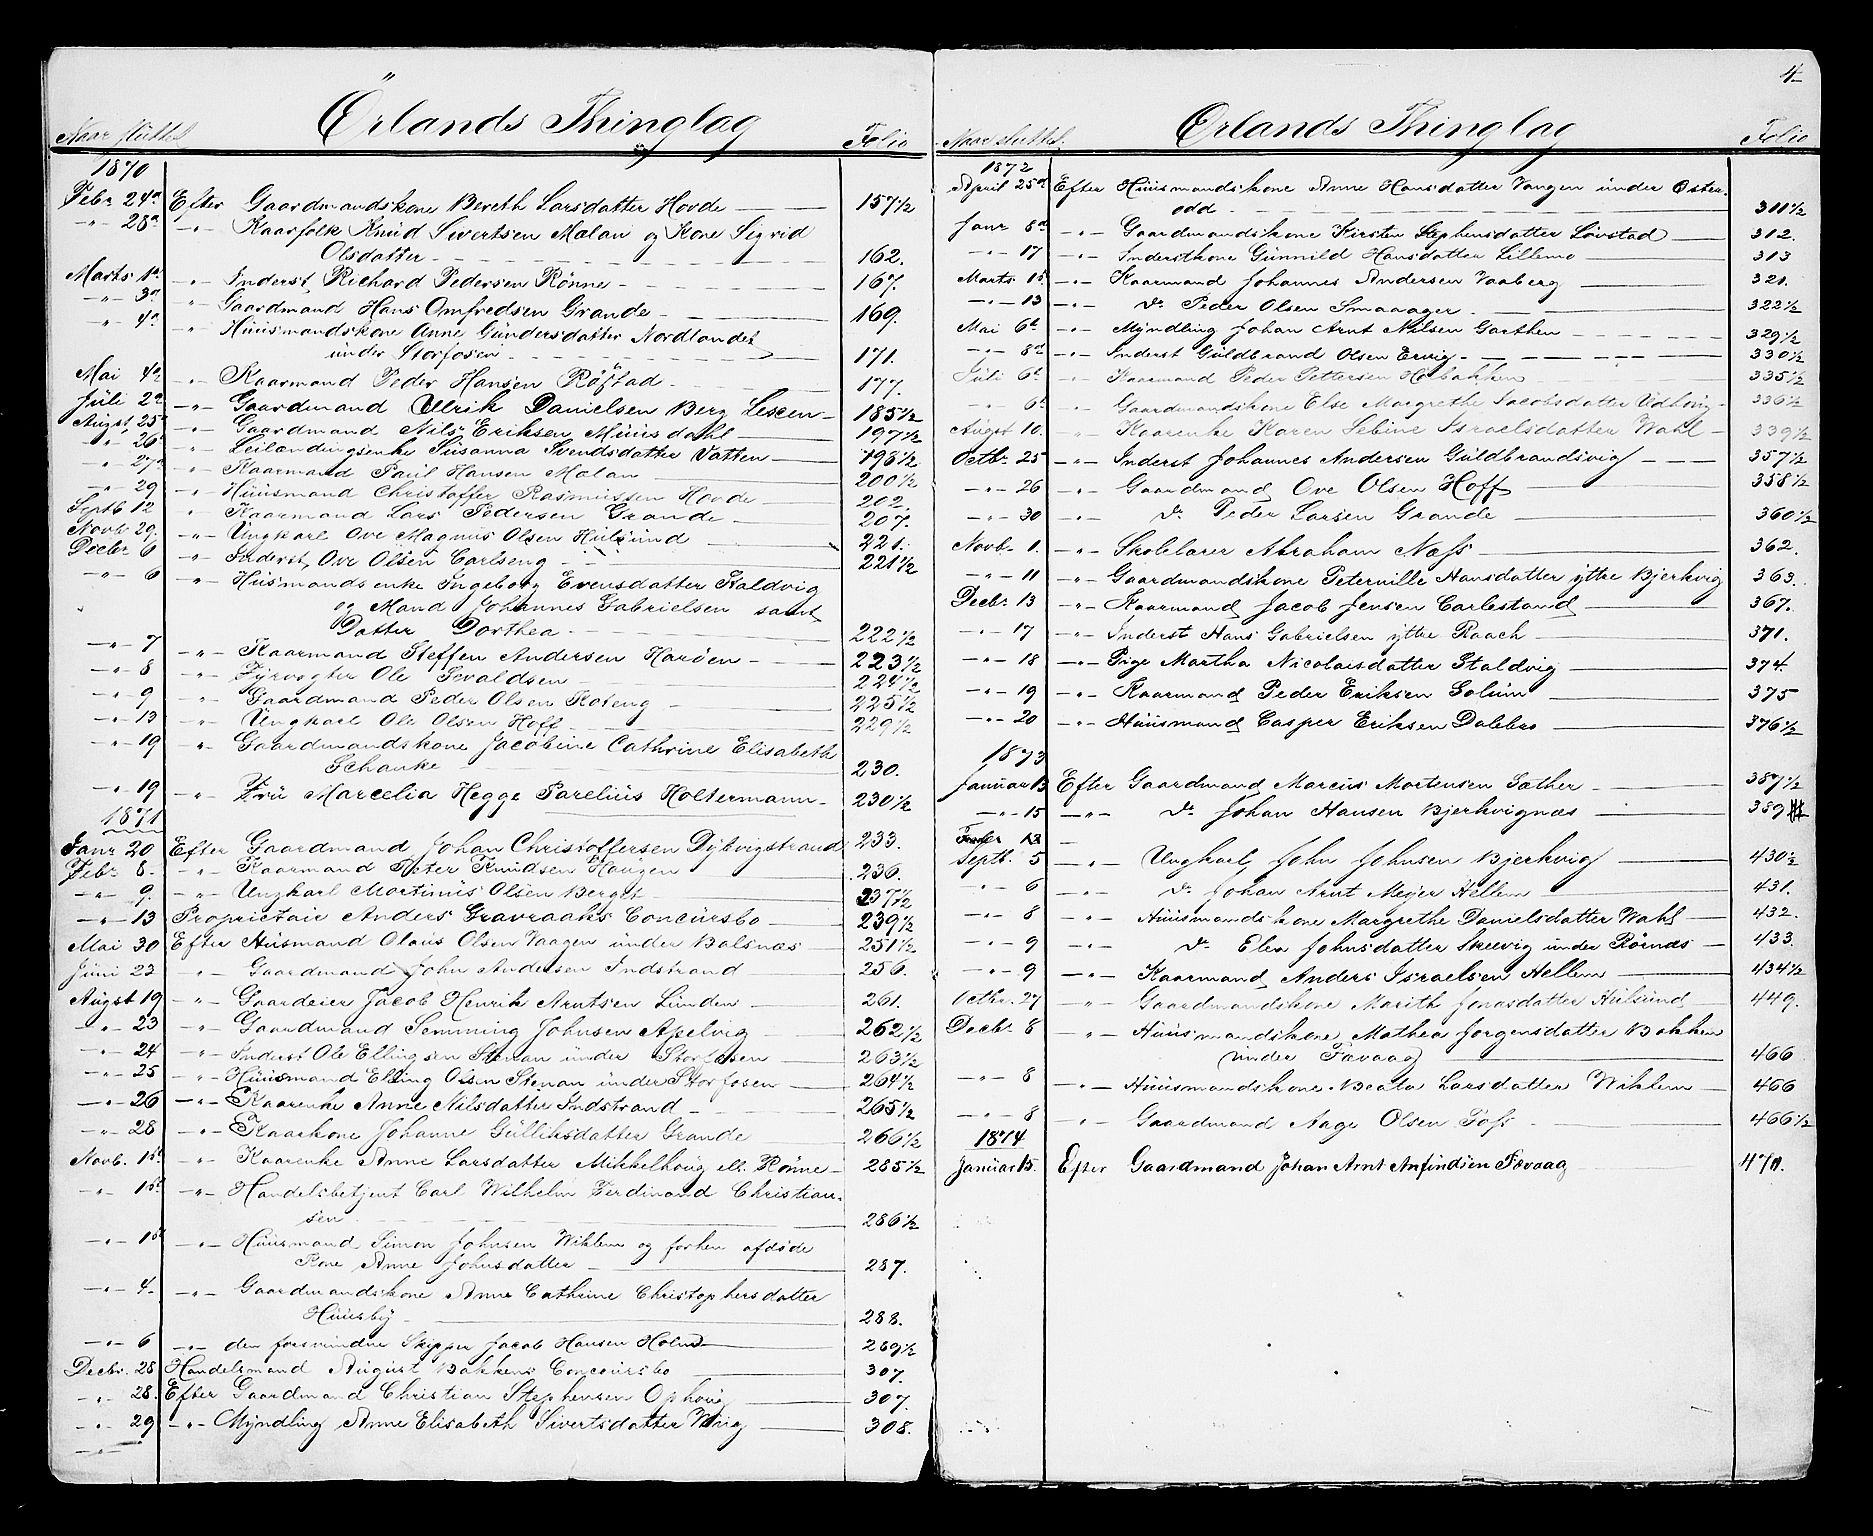 Ørlands Thinglag
Naar sluttet Folio
1870
Febr 24de Efter Gaardmandskone Bereth Larsdatter Hovde 157 1/2
-"- 28de -"- Kaarfolk Knüd Sivertsen Malan og Kone Sigrid
Olsdatter 162.
Marts 1st -"- Inderst Richard Pedersen Rönne 167.
-"- 3de -"- Gaardmand Hans Omfredsen Grande 169.
-"- 4de -"- Hüüsmandskone Anne Gündersdatter Nordlandet
under Storfosen 171.
Mai 4de -"- Kaarmand Peder Hansen Röstad 177.
Juli 2de -"- Gaardmand Ulrik Danielsen Berg Lexen 185 1/2
Augst 25de -"- Gaardmand Nils Eriksen Müüsdahl 197 1/2
-"- 26 -"- Leilændingsenke Susanna Svendsdatter Vatten 198 1/2
-"- 27de -"- Kaarmand Paul Hansen Malan 200 1/2
-"- 29 -"- Hüüsmand Christoffer Rasmussen Hovde 202.
Septb 12 -"- Kaarmand Lars Pedersen Grande 207.
Novb. 29. -"- Ungkarl Ove Magnus Olsen Hülsünd 221.
Decbr 6 -"- Inderst Ove Olsen Carlseng 221 1/2
-"- 6 -"- Hüsmandsenke Ingeborg Evensdatter Staldvig
og Mand Johannes Gabrielsen samt
Datter Dorthea 222 1/2
-"- 7 -"- Kaarmand Steffen Andersen Haröen 223 1/2
-"- 8 -"- Fyrvogter Ole Sevaldsen 224 1/2
-"- 9 -"- Gaardmand Peder Olsen Roteng 225 1/2
-"- 13 -"- Ungkarl Ole Olsen Hoff 229 1/2
-"- 19 -"- Gaardmandskone Jacobine Cathrine Elisabeth
Schanke 230.
-"- 19 -"- Frü Marcelia Hegge Parelius Holtermann 230 1/2
1871
Janr 20 Efter Gaardmand Johan Christoffersen Dybvigstrand 233.
Febr 8. -"- Kaarmand Peter Knudsen Haugen 236.
-"- 9. -"- Ungkarl Martinus Olsen Berget 237 1/2
-"- 13 Proprietair Anders Gravraaks Concürsbo 239 1/2
Mai 30 Efter Hüsmand Olaus Olsen Vaagen ünder Balsnæs 251 1/2
Jüni 23 -"- Gaardmand John Andersen Indstrand 256.
Augst 19 -"- Gaardeier Jacob Henrik Arntsen Lünden 261.
-"- 23 -"- Gaardmand Semming Johnsen Apelvig 262 1/2
-"- 24 -"- Inderst Ole Ellingsen Stenan ünder Storfosen 263 1/2
-"- 25 -"- Hüüsmand Elling Olsen Stenan ünder Storfosen 264 1/2
-"- 26 -"- Kaarenke Anne Nilsdatter Indstrand 265 1/2
-"- 28 -"- Kaarkone Johanne Gülliksdatter Grande 266 1/2
Novb. 1st -"- Kaarenke Anne Larsdatter Mikkelhoug ell. Rönne 285 1/2
-"- 1st -"- Handelsbetjent Carl Wilhelm Ferdinand Christian-
sen 286 1/2
-"- 1st -"- Hüüsmand Simon Johnsen Wiklem og forhen afdøde
Kone Anne Johnsdatter 287.
-"- 4. -"- Gaardmandskone Anne Cathrine Christophersdatter
Hüüsby 288.
-"- 6 -"- den forsvundne Skipper Jacob Hansen Holm 289 1/2
Decbr. 28 Handelsmand August Bakkens Concoursbo 307.
-"- 28. Efter Gaardmand Christian Stephensen Ophoüg 307.
-"- 29 -"- Myndling Anne Elisabeth Sivertsdatter Wrig 308.
-"-
4
Ørlands Thinglag
Naar sluttet. Folio
1872
April 25de Efter Hüüsmandskone Anne Hansdatter Vangen ünder Øster-
odd 311 1/2
Janr 8de -"- Gaardmandskone Kirsten Stephensdatter Lövstad 312.
-"- 17 -"- Inderstkone Günnild Hansdatter Lillemo 313
Marts 1st -"- Kaarmand Johannes Andersen Vaaberg 321.
-"- 13 -"- Do Peder Olsen Smaaager 322 1/2
Mai 6te -"- Myndling Johan Arnt Nilsen Garthen 329 1/2
-"- 8de -"- Inderst Güldbrand Olsen Ervig 330 1/2
Jüli 6te -"- Kaarmand Peder Pettersen Holbakken 335 1/2
-"- 6te -"- Gaardmandskone Else Margrethe Jacobsdatter Udhoüg 336 1/2
Augst 10. -"- Kaarenke Karen Sebine Israelsdatter Wahl 339 1/2
Octbr 25 -"- Inderst Johannes Andersen Güldbrandsvig 357 1/2
-"- 26 -"- Gaardmand Ove Olsen Hoff 358 1/2
-"- 30 -"- Do Peder Larsen Grande 360 1/2
Novb. 1. -"- Skolelærer Abraham Næss 362.
-"- 11 -"- Gaardmandskone Peternille Hansdatter ytre Bjerkvig 363.
Decbr. 13 -"- Kaarmand Jacob Jensen Carlestrand 367.
-"- 17 -"- Inderst Hans Gabrielsen ytre Raach 371.
-"- 18 -"- Pige Martha Nicolaisdatter Staldvig 374.
-"- 19 -"- Kaarmand Peder Eriksen Solüm 375
-"- 20 -"- Hüüsmand Casper Eriksen Dalebro 376 1/2
1873
Januar 13 Efter Gaardmand Marcus Mortensen Sæther 387 1/2
-"- 15 -"- Do Johan Hansen Bjerkvignæs 389
13
Septb. 5 -"- Ungkarl John Johnsen Bjerkvig 430 1/2
-"- 6 -"- Do Johan Arnt Meyer Hellem 431.
-"- 8 -"- Hüüsmandskone Margrethe Danielsdatter Wahl 432.
-"- 9 -"- Do Elen Johnsdatter Skeevig ünder Rörnæs 433.
-"- 9 -"- Kaarmand Anders Israelsen Hellem 434 1/2
Octbr. 27 -"- Gaardmandskone Marith Jonasdatter Hülsünd 449.
Decbr. 8 -"- Hüüsmandskone Mathea Jørgensdatter Bakken
ünder Fævaag 466
-"- 8 -"- Hüüsmandskone Beata Larsdatter Wiklem 466
-"- 8 -"- Gaardmand Aage Olsen Foss 466 1/2
1874
Januar 15. Efter Gaardmand Johan Arnt Anfindsen Fævaag 470.